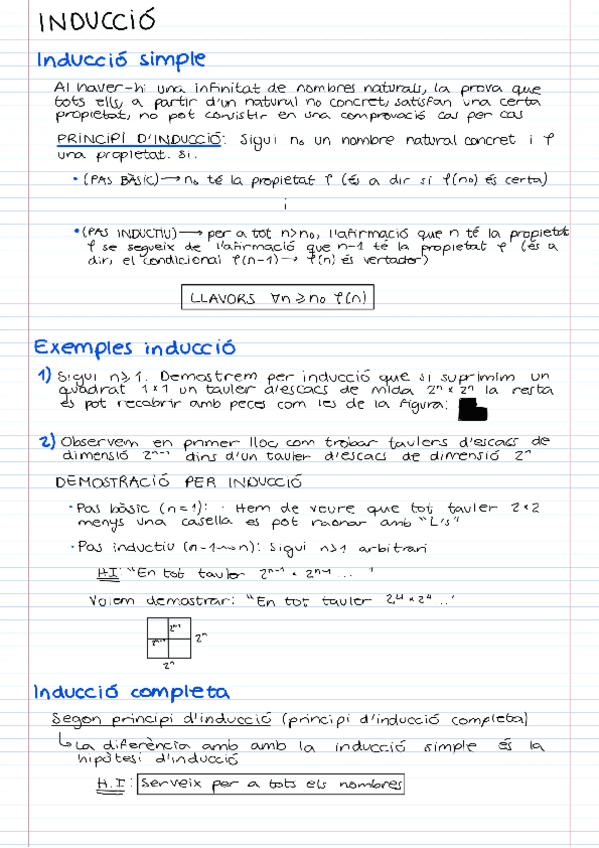 INDUCCIÓ
Inducció simple
Al haver-hi una infinitat de nombres naturals, la prova que
tots ells, a partir d'un natural no concret, satisfan una certa
propietat, no pot consistir en una comprovació cas per cas
PRINCIPI D'INDUCCIÓ: Sigui n₀ un nombre natural concret i P
una propietat. Si:
• (PAS BÀSIC) → n₀ té la propietat P (és a dir si P(n₀) és certa)
i
• (PAS INDUCTIU) → per a tot n>n₀, l'afirmació que n té la propietat
P se segueix de l'afirmació que n-1 té la propietat P (és a
dir, el condicional P(n-1) → P(n) és vertader)
LLAVORS ∀n ⩾ n₀ P(n)
Exemples inducció
1) Sigui n⩾1. Demostrem per inducció que si suprimim un
quadrat 1×1 un tauler d'escacs de mida 2ⁿ × 2ⁿ la resta
és pot recobrir amb peces com les de la figura:
2) Observem en primer lloc, com trobar taulers d'escacs de
dimensió 2ⁿ⁻¹ dins d'un tauler d'escacs de dimensió 2ⁿ
DEMOSTRACIÓ PER INDUCCIÓ
• Pas bàsic (n=1): · Hem de veure que tot tauler 2×2
menys una casella es pot raonar amb "L's"
• Pas inductiu (n-1⇝n): Sigui n>1 arbitrari
H.I: "En tot tauler 2ⁿ⁻¹ × 2ⁿ⁻¹ ... "
Volem demostrar: "En tot tauler 2ⁿ × 2ⁿ ..."
2ⁿ⁻¹
2ⁿ⁻¹ 2ⁿ
2ⁿ
Inducció completa
Segon principi d'inducció (principi d'inducció completa)
↳ La diferència amb amb la inducció simple és la
hipòtesi d'inducció
H.I: Serveix per a tots els nombres